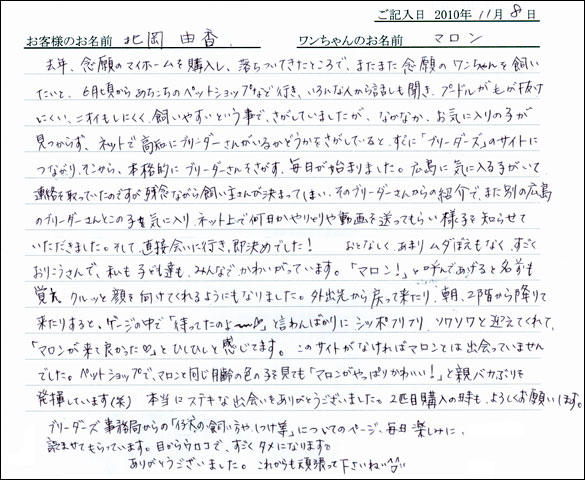 ご記入日 2010年 11月 8日
お客様のお名前 北岡 由香 ワンちゃんのお名前 マロン
去年、念願のマイホームを購入し、落ちついてきたところで、またまた念願のワンちゃんを飼い
たいと、6月頃からあちこちのペットショップなど行き、いろんな人から話しも聞き、プードルが毛が抜け
にくい、ニオイもしにくく、飼いやすいという事で、さがしていましたが、なかなか、お気に入りの子が
見つからず、ネットで高知にブリーダーさんがいるかどうかをさがしていると、すぐに「ブリーダーズ」のサイトに
つながり、そこから、本格的にブリーダーさんをさがす、毎日が始まりました。広島に気に入る子がいて
連絡を取っていたのですが残念ながら飼い主さんが決まってしまい、そのブリーダーさんからの紹介で、また別の広島
のブリーダーさんとこの子を気に入り、ネット上で何日かやりとりや動画を送ってもらい様子を知らせて
いただきました。そして、直接会いに行き、即決めでした! おとなしく、あまりムダぼえもなく、すごく
おりこうさんで、私も子ども達も、みんなで、かわいがっています。「マロン!」と呼んであげると名前も
覚え クルッと顔を向けてくれるようにもなりました。外出先から戻って来たり、朝、2階から降りて
来たりすると、ゲージの中で「待ってたのよ〜♡」と言わんばかりに シッポフリフリ、ソワソワと迎えてくれて、
「マロンが来て良かった♡」とひしひしと感じてます。このサイトがなければマロンとは出会っていません
でした。ペットショップで、マロンと同じ月齢の色の子を見ても「マロンがやっぱりかわいい!」と親バカぶりを
発揮しています(笑) 本当にステキな出会いをありがとうございました。2匹目購入の時も、よろしくお願いします。
ブリーダーズ事務局からの「仔犬の飼い方や、しつけ等」についてのページ、毎日楽しみに、
読ませてもらっています。目からウロコで、すごくタメになります。
ありがとうございました。これからも頑張って下さいね